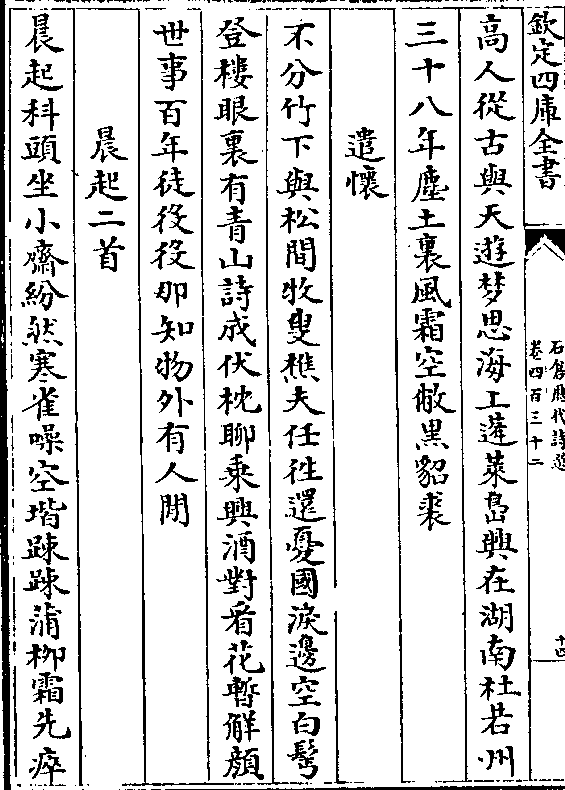 欽定四庫全書
石倉歷代詩選
卷四百三十二
十四
高人從古與天遊梦思海上蓬萊島興在湖南杜若州
三十八年塵土裏風霜空敝黑貂裘
遣懷
不分竹下與松間牧叟樵夫任往還憂國淚邊空白髩
登樓眼裏有青山詩成伏枕聊乗興酒對看花暫解顔
世事百年徒役役那知物外有人閒
晨起二首
晨起科頭坐小齋紛然寒雀噪空堦踈踈蒲柳霜先瘁